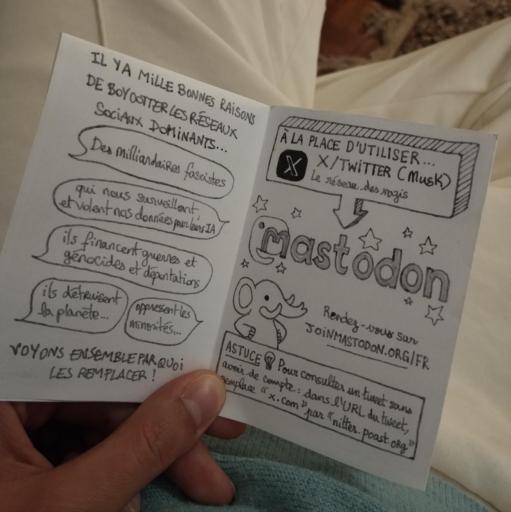 IL Y A MILLE BONNES RAISONS
DE BOYCOTTER LES RÉSEAUX
SOCIAUX DOMINANTS...
Des milliardaires fascistes
qui nous surveillent
et volent nos données pour leurs IA
ils financent guerres et
génocides et déportations
ils détruisent
la planète...
oppressent les
minorités...
VOYONS ENSEMBLE PAR QUOI
LES REMPLACER !
À LA PLACE D'UTILISER...
X
X/TWITTER (MUSK)
Le réseau des nazis
mastodon
Rendez-vous sur
JOINMASTODON.ORG/FR
ASTUCE Pour consulter un tweet sans
avoir de compte : dans l'URL du tweet,
remplace "x.com" par "nitter.poast.org"